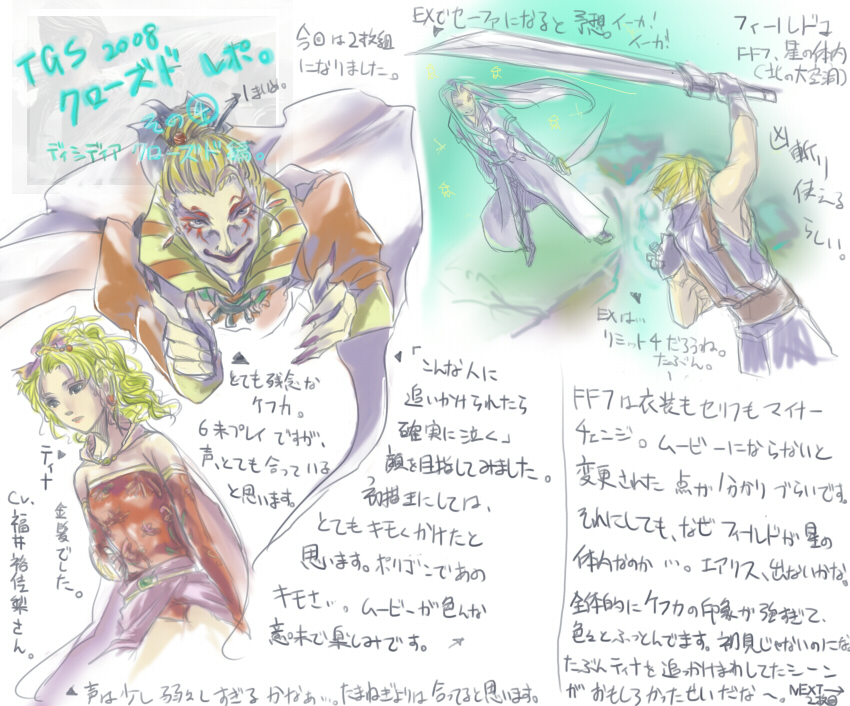 TGS 2008
クローズド レポ。
その④
→1まいめ。
ディシディア クローズド編。
今回は2枚組
になりました。
EXでセーファになると予想。イーカ!
イーカ!
フィールドは
FF7、星の体内
(北の大空洞)
凶斬り
使える
らしい。
EXは…
リミット4だろうね。
たぶん。
とても残念な
ケフカ。
6未プレイですが、
声、とても合っている
と思います。
「こんな人に
追いかけられたら
確実に泣く」
顔を目指してみました。
にしては、
とてもキモくかけたと
思います。ポリゴンであの
キモさ…。ムービーが色んな
意味で楽しみです。
ティナ
金髪でした。
CV.福井裕佳梨さん。
声は少し弱々しすぎるかなぁ…。たまねぎよりは合ってると思います。
FF7は衣装もセリフもマイナー
チェンジ。ムービーにならないと
変更された点が分かりづらいです。
それにしても、なぜフィールドが星の
体内なのか…。エアリス、出ないかな。
全体的にケフカの印象が強すぎて、
色々とふっとんでます。初見じゃないのにな
たぶんティナを追っかけまわしてたシーン
がおもしろかったせいだな〜。
NEXT→
2枚目